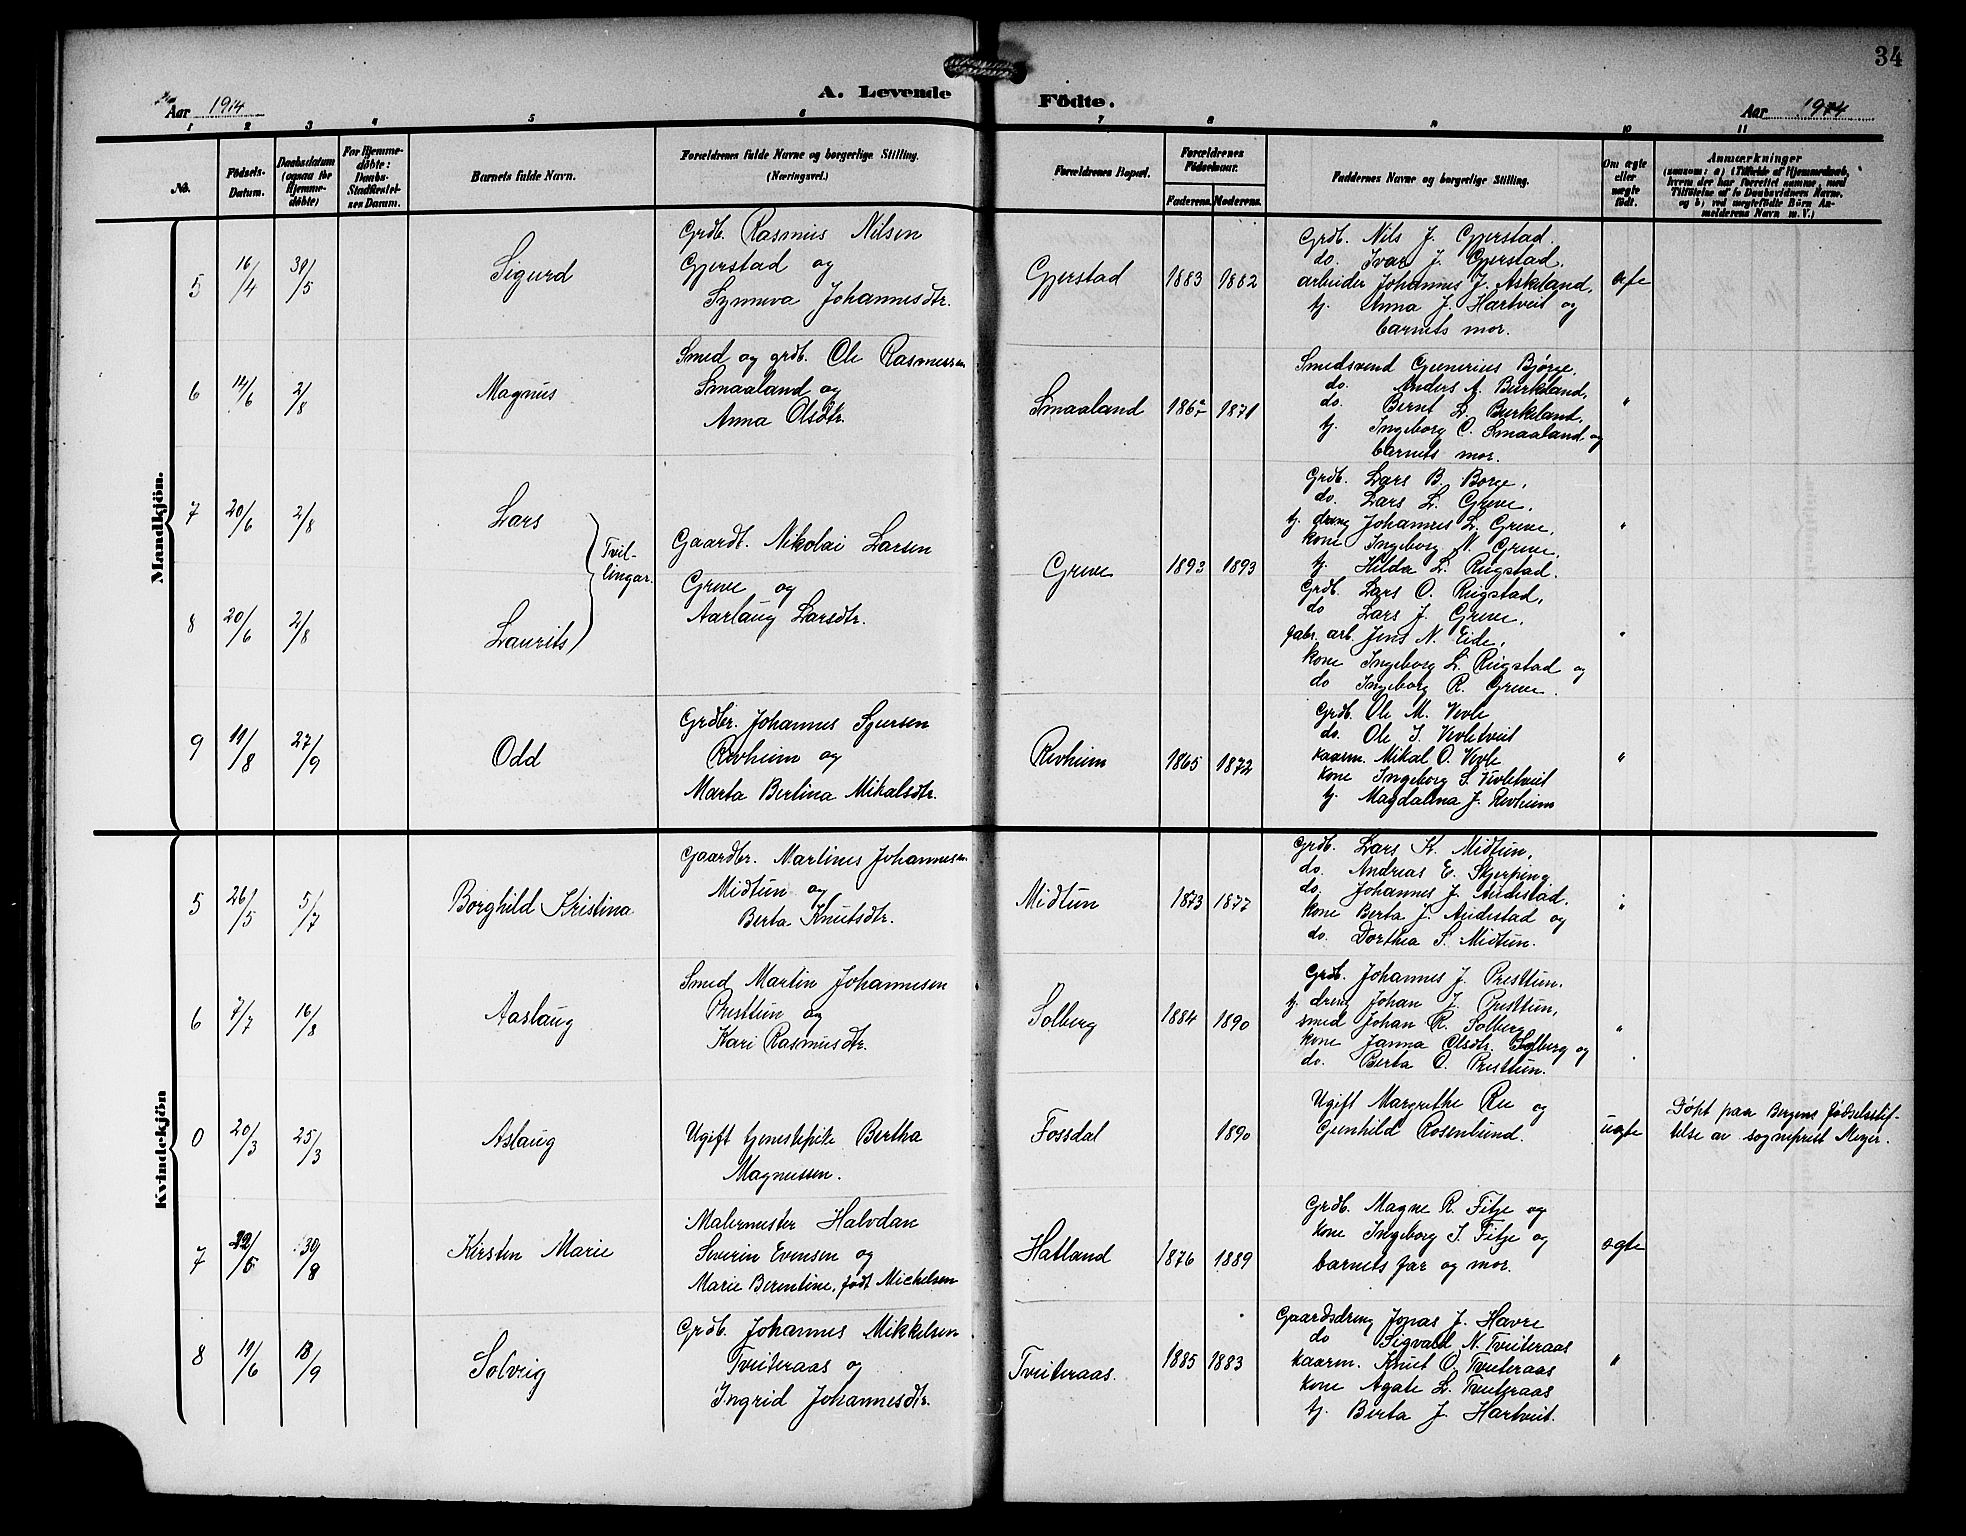 34
Aar 1914
A. Levende Födte.
Aar 1914
1 2 3 4 5 6 7 8 9 10 11
No.
Födsels-Datum.
Daabsdatum (ogsaa for Hjemmedöbte)
For Hjemmedöbte: Daabs-Stadfæstelsens Datum.
Barnets fulde Navn.
Forældrenes fulde Navne og borgerlige Stilling. (Næringsvei.)
Forældrenes Bopæl.
Forældrenes Födselsaar.
Faderens. Moderens.
Faddernes Navne og borgerlige Stilling.
Om ægte eller uægte födt.
Anmærkninger
Mandkjön.
5 16/4 31/5 Sigurd
Grdb. Rasmus Nilsen
Gjerstad og
Synneva Johannesdtr.
Gjerstad 1883 1882
Grdb. Nils J. Gjerstad.
do. Ivar J. Gjerstad.
arbeider Johannes J. Askeland,
tj. Anna J. Hartveit og
barnets mor.
6 14/6 2/8 Magnus
Smed og grdb. Ole Rasmussen
Smaaland og
Anna Olsdtr.
Smaaland 1867 1871
Smedsvend Gunerius Bjørge,
do. Anders A. Burkeland,
do. Bernt L. Burkeland,
tj. Ingeborg O. Smaaland og
barnets mor.
"
7 20/6 2/8 Lars
8 20/6 2/8 Laurits
Tvil-
lingar.
Gaardb. Nikolai Larsen
Greve og
Aarlaug Larsdtr.
Greve 1893 1893
Grdb. Lars B. Borge,
do. Lars L. Greve,
tj. dreng Johannes L. Greve,
kone Ingeborg N. Greve,
tj. Hilda L. Rugstad.
"
Grdb. Lars O. Rugstad,
do Lars J. Greve,
fabr. arb. Jens N. Eide,
kone Ingeborg L. Rugstad og
do Ingeborg R. Greve.
"
9 11/8 27/9 Odd
Grdbr. Johannes Sjursen
Revheim og
Marta Bertina Mikalsdtr.
Revheim 1865 1872
Grdb. Ole M. Vevle
do. Ole S. Vevletveit
kaarm. Mikal O. Vevle
kone Ingeborg S. Vevletveit
tj. Magdalena J. Revheim
"
Kvindekjön
5 26/5 5/7 Borghild Kristina
Gaardbr. Martines Johannesen
Midtun og
Berta Knutsdtr.
Midtun 1873 1877
Grdb. Lars K. Midtun,
do. Andreas E. Skjerping
do. Johannes J. Audestad.
kone Berta J. Audestad og
do. Dorthea S. Midtun.
"
6 7/7 16/8 Aaslaug
Smed Martin Johannesen
Presttun og
Kari Rasmusdtr.
Solberg 1884 1890
Grdb. Johannes J. Presttun.
tj. dreng Johan J. Presttun,
smed Johan R. Solberg
kone Janna Olsdtr. Solberg og
do. Berta O. Presttun.
"
0 20/3 25/3 Aslaug
Ugift tjenestepike Bertha
Magnussen.
Fossdal 1890
Ugift Margrethe Ree og
Gunhild Rosenlund.
uegte
Døpt paa Bergens fødselsstif-
telse av sogneprest Meyer.
7 22/5 30/8 Kirsten Marie
Malermester Halvdan
Severin Evensen og
Marie Berentine, født Michelsen
Hatland 1876 1889
Grdb. Magne R. Fitje og
kone Ingeborg S. Fitje og
barnets far og mor.
egte
8 19/6 13/9 Solveig
Grdb. Johannes Mikkelsen
Tveiteraas og
Ingrid Johannesdtr.
Tveiteraas. 1885 1883
Gaardsdreng Jonas J. Havre
do Sigvald N. Tveiteraas
kaarm. Knut O. Tveiteraas
kone Agate L. Tveiteraas
tj. Berta J. Hartveit.
"